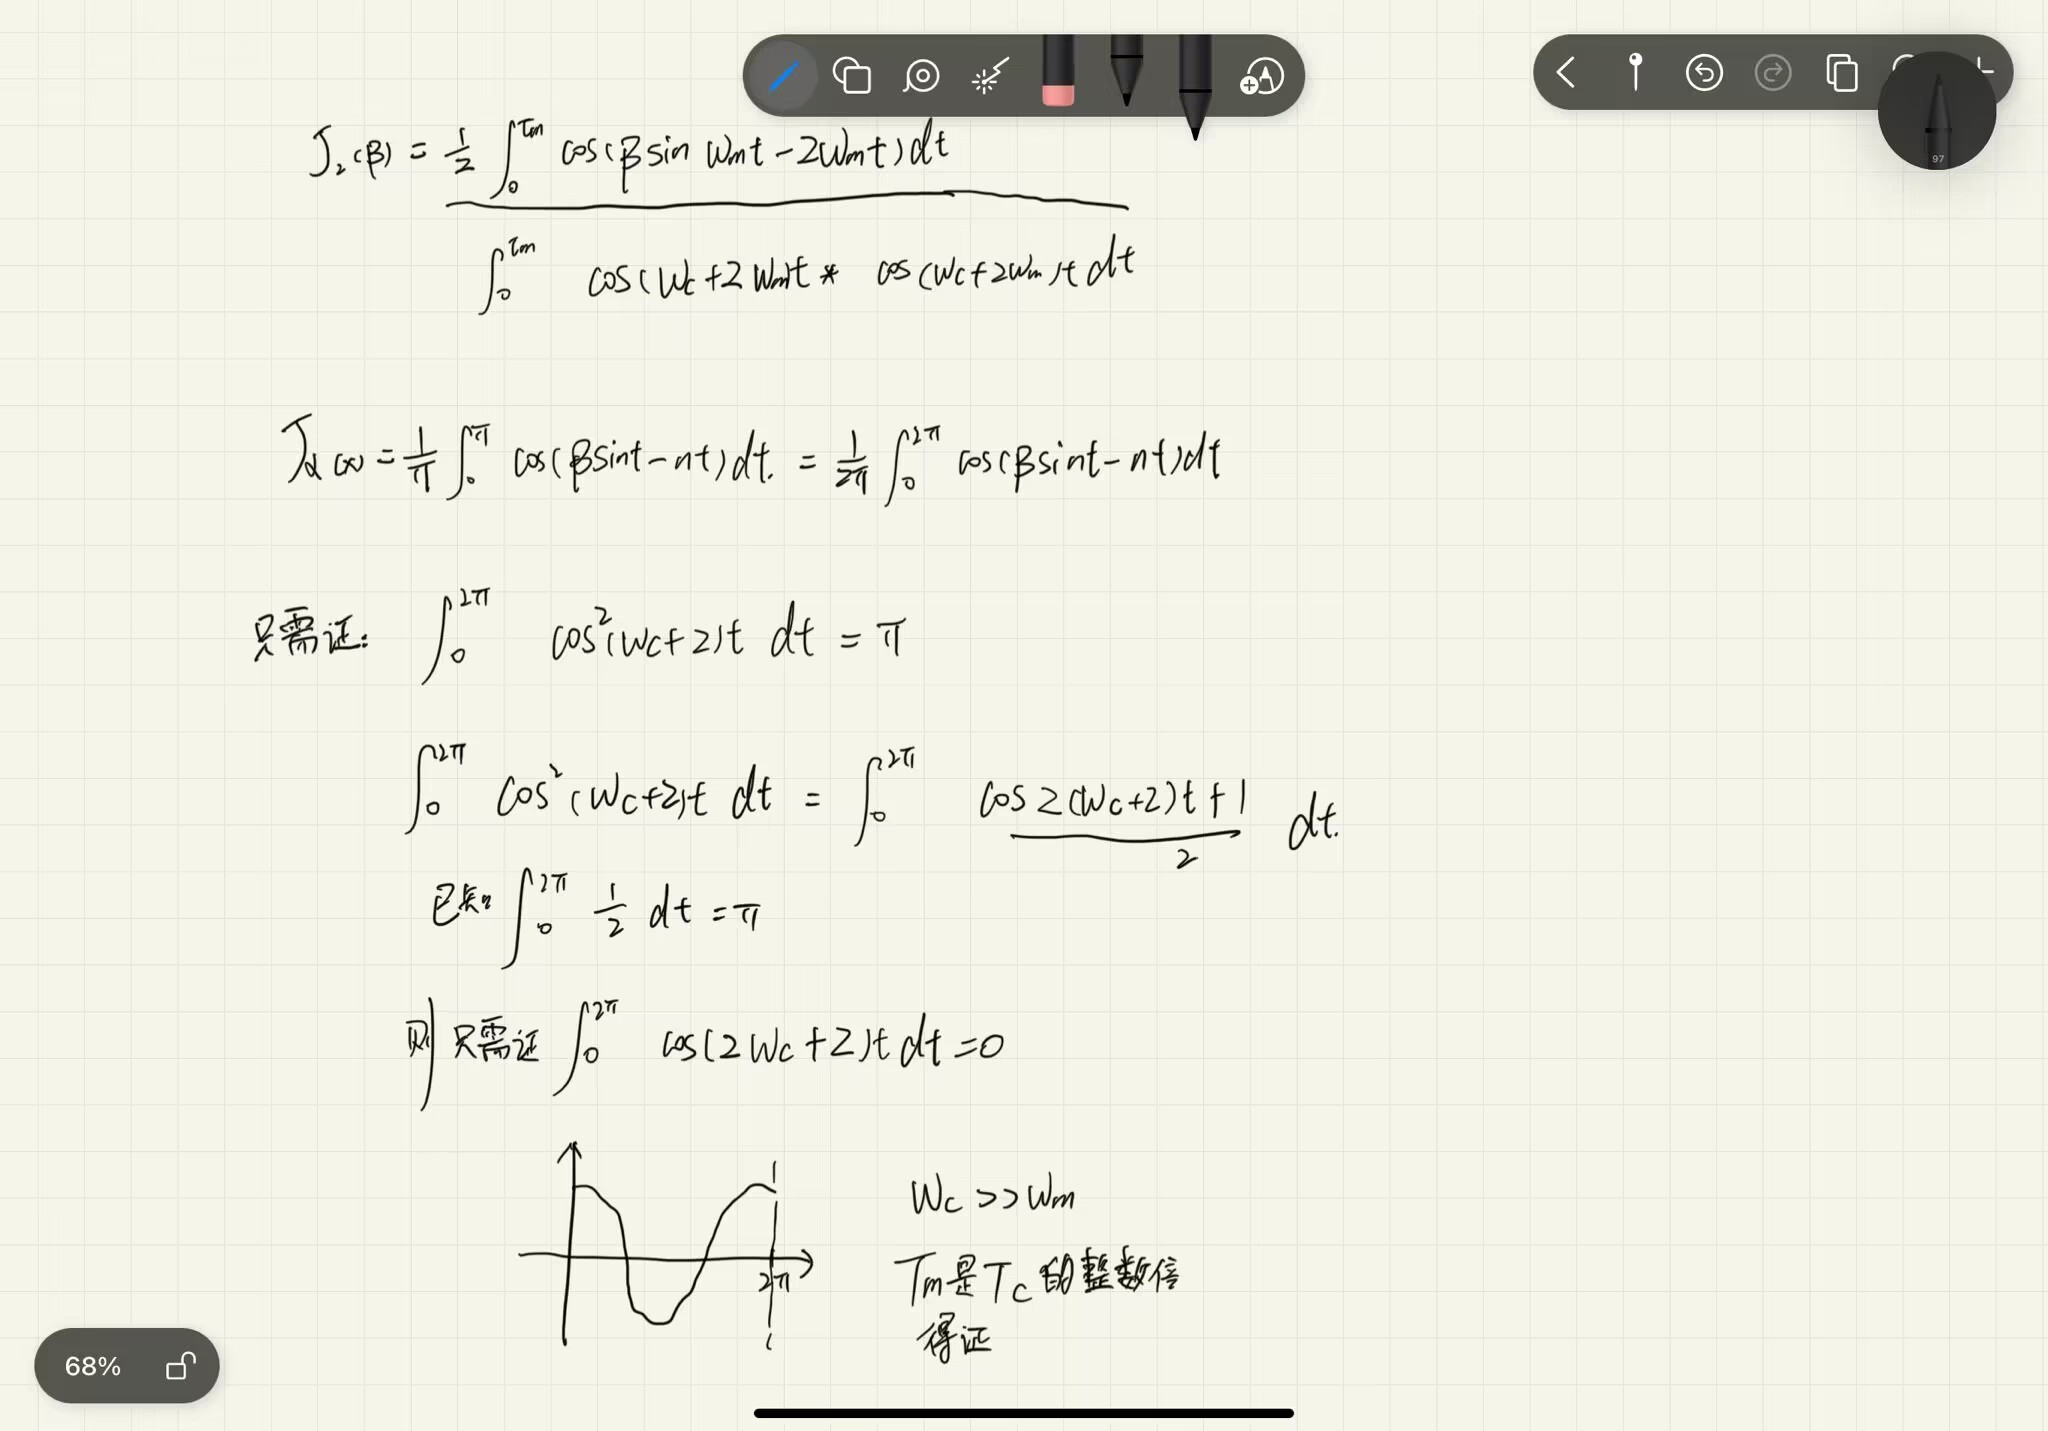 97
J₂(β) = 1/2 ∫₀^Tm cos(β sin Wmt − 2Wmt)dt
∫₀^Tm cos(Wc+2Wm)t * cos(Wc+2Wm)t dt
Jα(x) = 1/π ∫₀^π cos(βsint−nt)dt. = 1/2π ∫₀^2π cos(βsint−nt)dt
只需证: ∫₀^2π cos²(Wc+2)t dt = π
∫₀^2π cos²(Wc+2)t dt = ∫₀^2π (cos2(Wc+2)t+1)/2 dt.
已知 ∫₀^2π 1/2 dt = π
则只需证 ∫₀^2π cos(2Wc+2)t dt = 0
2π
Wc >> Wm
Tm是Tc的整数倍
得证
68%